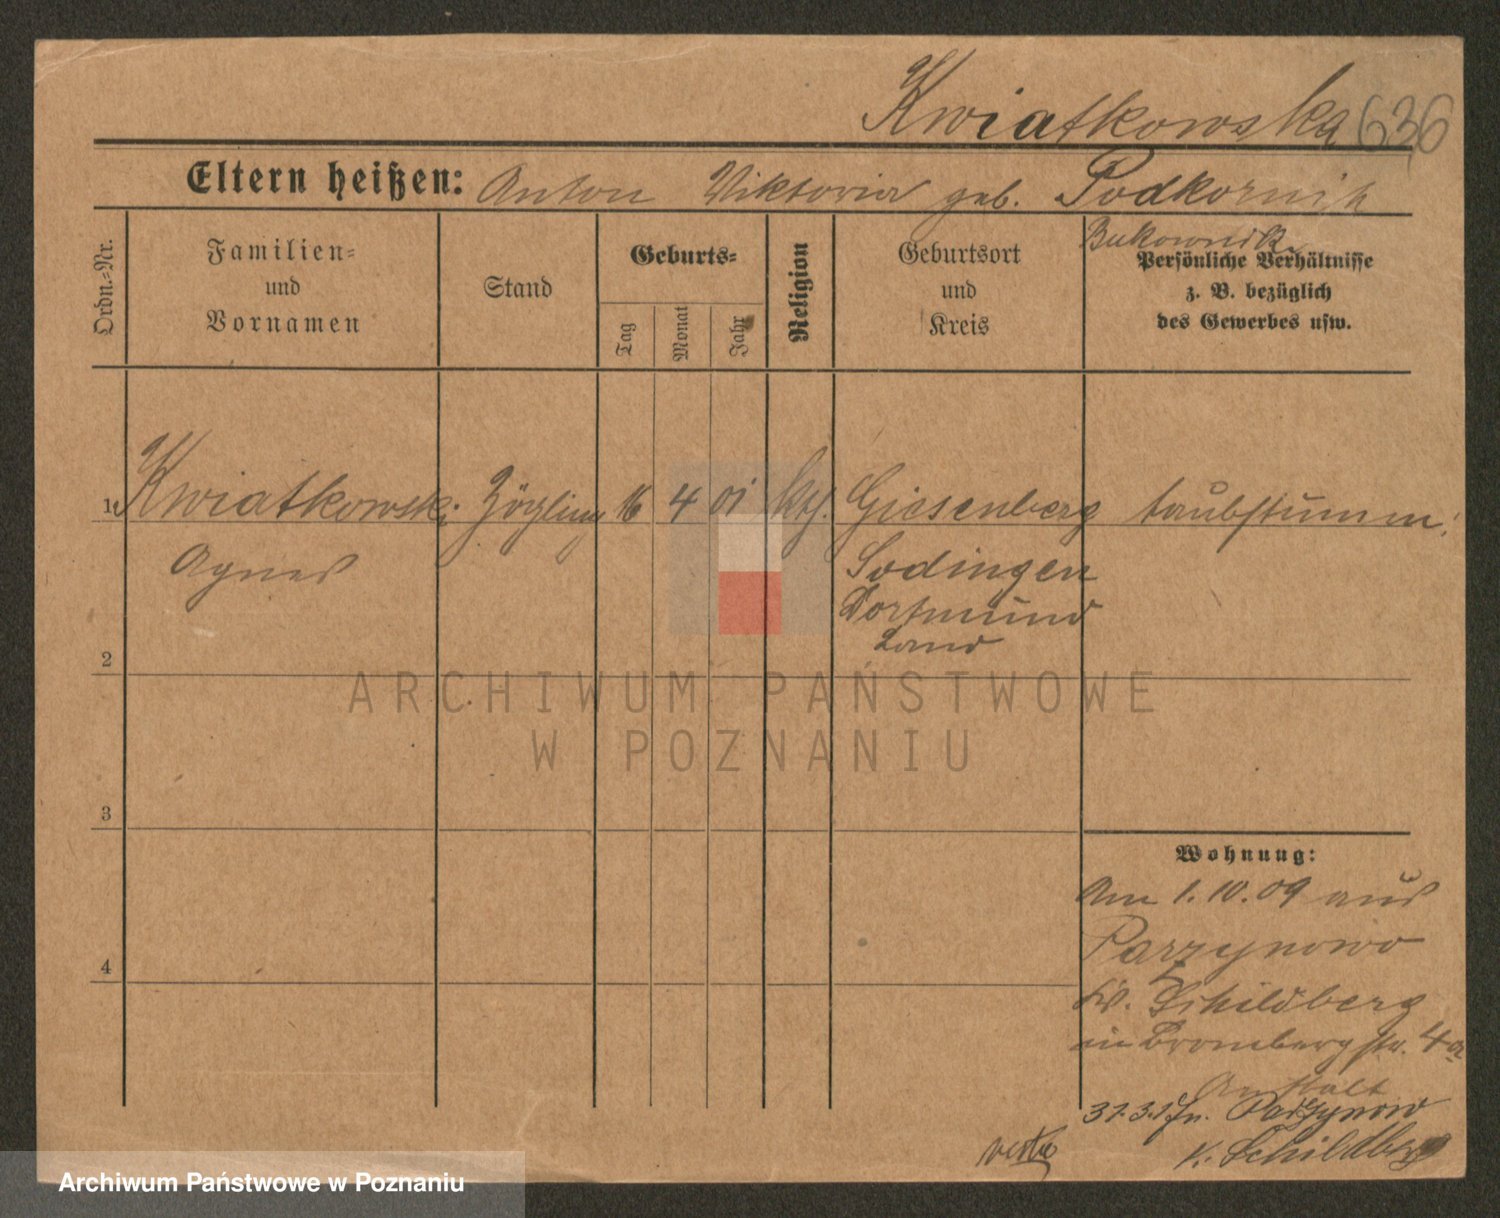 Kwiatkowska 636
Eltern heißen: Anton Viktoria geb. Podkornik
Bukownik
Ordn.-Nr.
Familien-
und
Vornamen
Stand
Geburts-
Tag
Monat
Jahr
Religion
Geburtsort
und
Kreis
Persönliche Verhältnisse
z. B. bezüglich
des Gewerbes usw.
1. Kwiatkowski Zögling 16 4 01 kth. Giesenberg taubstumm.
Agnes Sodingen
Dortmund
Land
2
3
4
ARCHIWUM PAŃSTWOWE
W POZNANIU
Wohnung:
Am 1. 10. 09 aus
Parzynowo
Kr. Schildberg
in Brombergstr. 4a
Anstalt
31.3. Parzynow
K. Schildberg
Archiwum Państwowe w Poznaniu